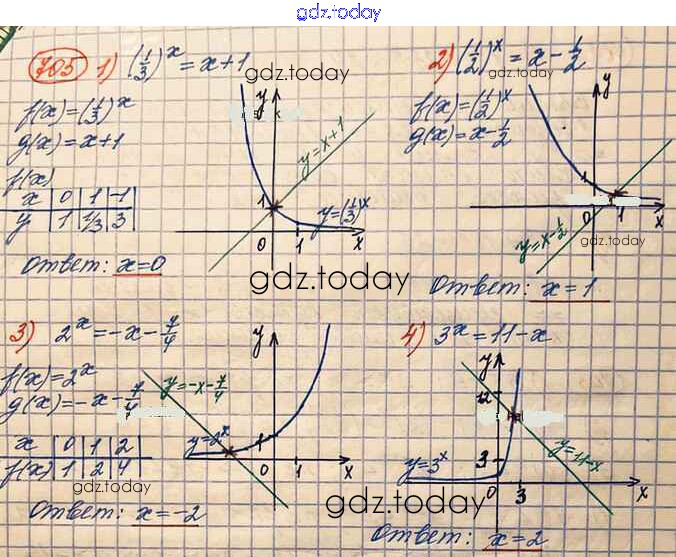 gdz.today
705 1) (1/3)^x = x+1
f(x)=(1/3)^x
g(x)=x+1
f(x)
x 0 1 -1
y 1 1/3 3
y
gdz.today
y=x+1
1
y=(1/3)^x
0 1 x
Ответ: x=0
2) (1/2)^x = x - 1/2
f(x)=(1/2)^x
g(x)=x-1/2
y
1
0 1 x
gdz.today
y=x-1/2
gdz.today
Ответ: x=1
3) 2^x = -x - 7/4
f(x)=2^x
g(x)=-x-7/4
x 0 1 2
f(x) 1 2 4
gdz.today
y
y=-x-7/4
y=2^x
1
0 1 x
Ответ: x=-2
4) 3^x = 11-x
y
12
y=11-x
y=3^x
3
0 3 x
gdz.today
Ответ: x=2